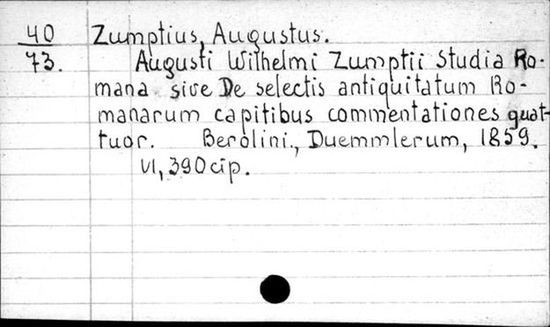 40 Zumptius, Augustus.
73. Augusti Wilhelmi Zumptii Studia Ro-
mana sive De selectis antiquitatum Ro-
manarum capitibus commentationes quat-
tuor. Berolini., Duemmlerum, 1859.
VI, 390 cip.